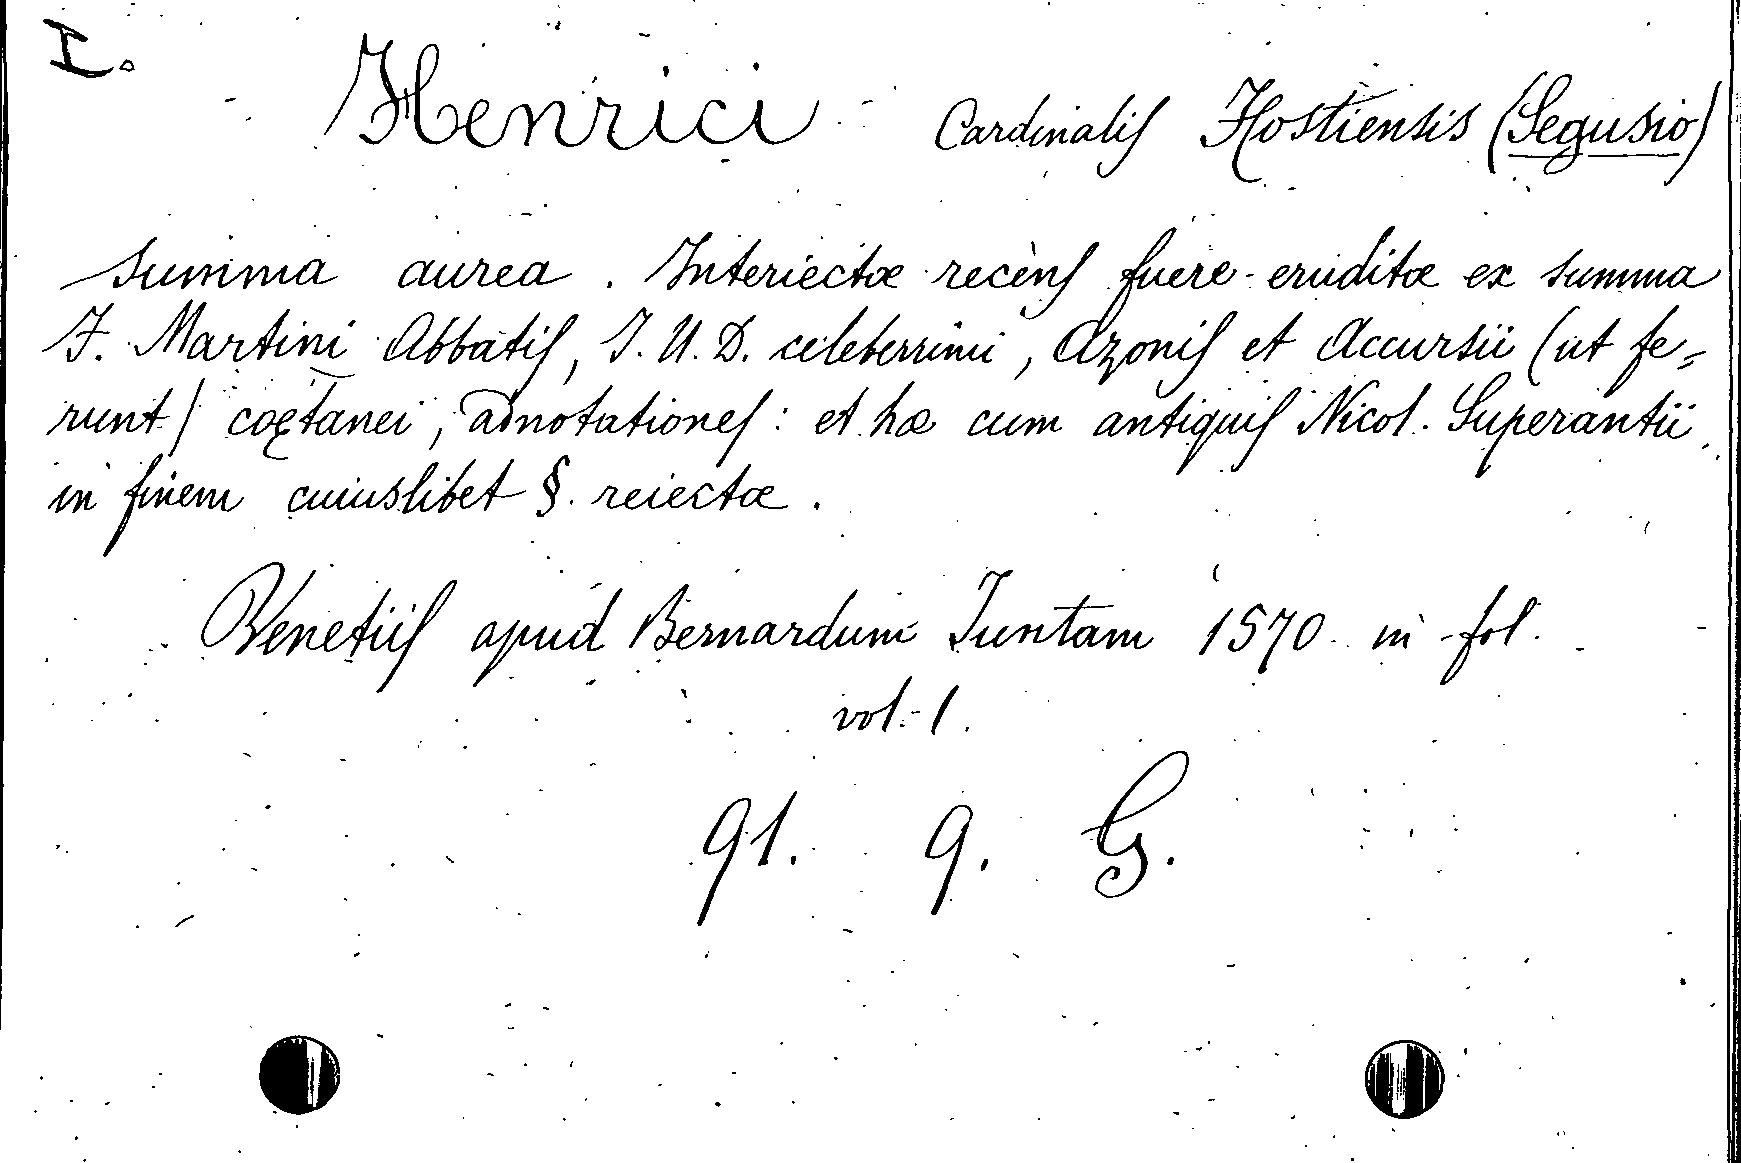 I.
Henrici Cardinalis Hostiensis (Segusio)
summa aurea. Interiectæ recèns fuere eruditæ ex summa
F. Martini Abbatis, I. U. D. celeberrimi, Azonis et Accursii (ut fe=
runt) coętanei, adnotationes: et hæ cum antiquis Nicol. Superantii
in finem cuiuslibet §. reiectæ.
Venetiis apud Bernardum Iuntam 1570 in fol.
vol. 1.
91. 9. G.